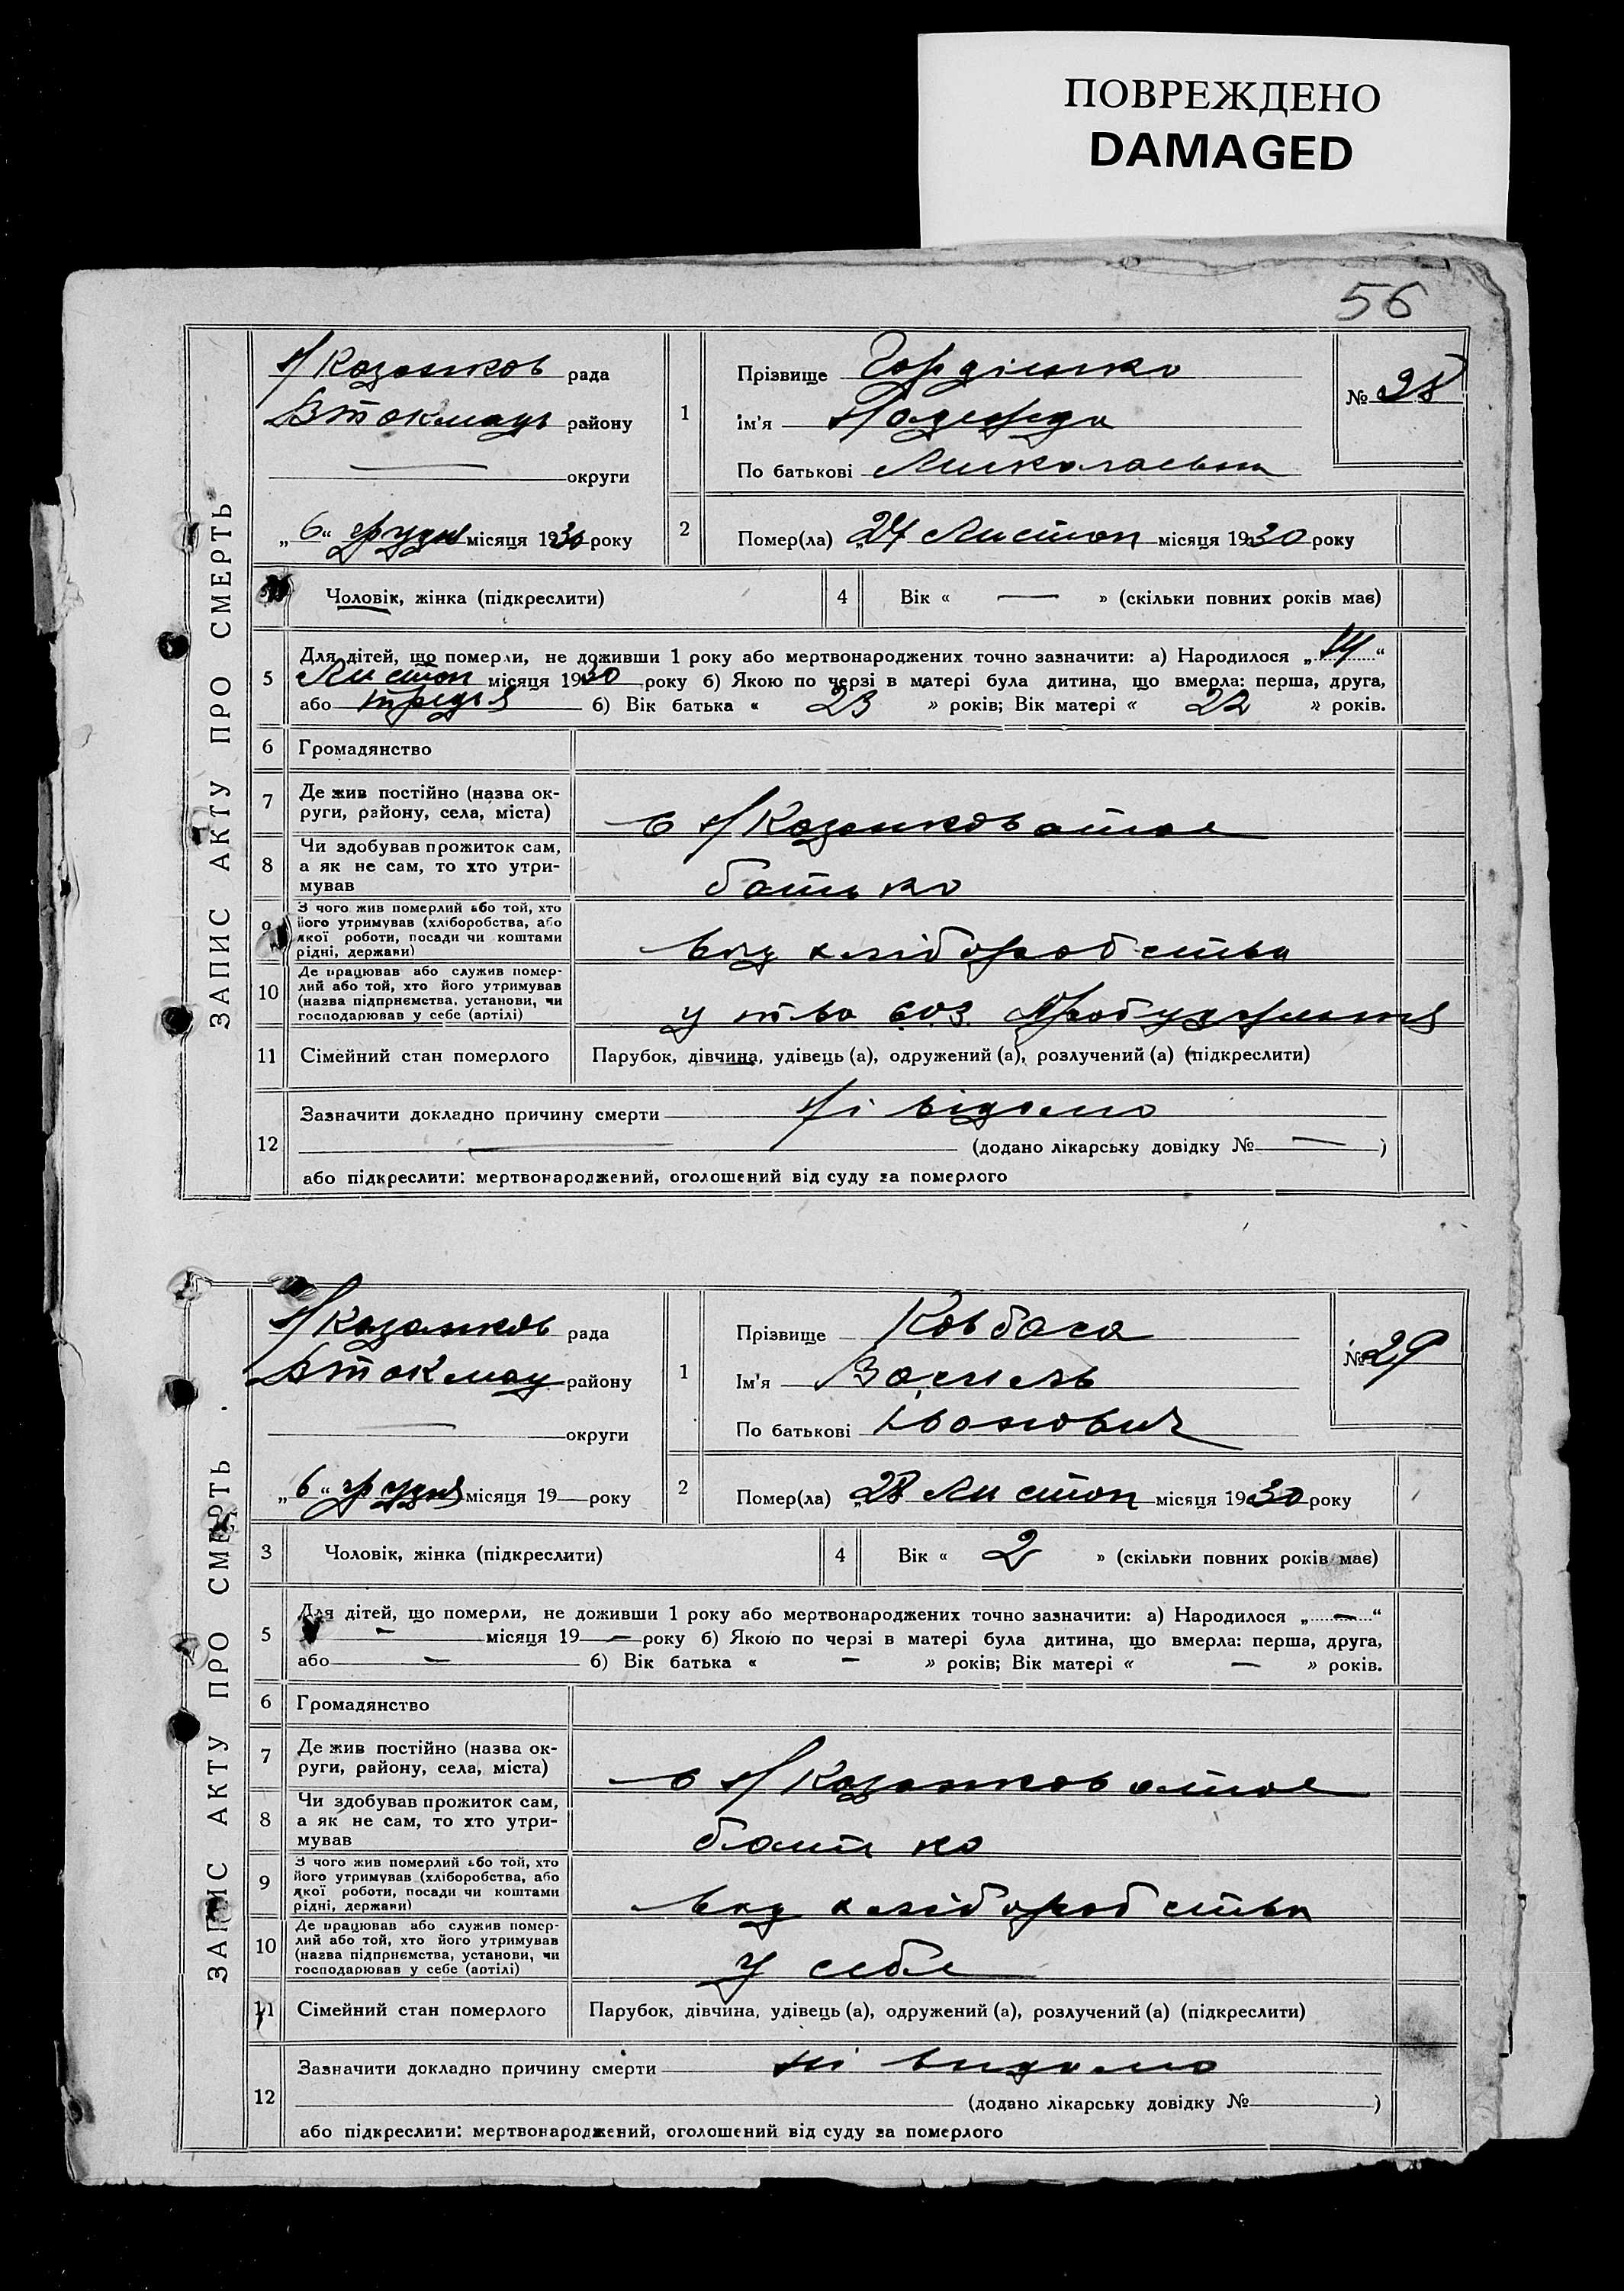 ПОВРЕЖДЕНО
DAMAGED
56
ЗАПИС АКТУ ПРО СМЕРТЬ
Н/Козанков рада
Втокмацьк району
— округи
„6“ грудня місяця 1930 року
1
Прізвище Гордієнко
ім'я Надежда
По батькові Миколаєвна
№ 28
2 Помер(ла) „27 Листоп місяця 1930 року
Чоловік, жінка (підкреслити)
4 Вік « — » (скільки повних років має)
5 Для дітей, що померли, не доживши 1 року або мертвонароджених точно зазначити: а) Народилося „14“
Листоп місяця 1930 року б) Якою по черзі в матері була дитина, що вмерла: перша, друга,
або третя 6) Вік батька « 23 » років; Вік матері « 22 » років.
6 Громадянство
7 Де жив постійно (назва ок-
руги, району, села, міста)
в Н/Козанковатое
8 Чи здобував прожиток сам,
а як не сам, то хто утри-
мував
батько
9 З чого жив померлий або той, хто
його утримував (хліборобства, або
якої роботи, посади чи коштами
рідні, держави)
вид хліборобства
10 Де працював або служив помер-
лий або той, хто його утримував
(назва підприємства, установи, чи
господарював у себе (артілі)
у т-ва соз
11 Сімейний стан померлого Парубок, дівчина, удівець (а), одружений (а), розлучений (а) (підкреслити)
12 Зазначити докладно причину смерти Ні відомо
— (додано лікарську довідку № — )
або підкреслити: мертвонароджений, оголошений від суду за померлого
ЗАПИС АКТУ ПРО СМЕРТЬ
Н/Козанков рада
Втокмац району
— округи
„6“ грудня місяця 19— року
1
Прізвище Ковбаса
Ім'я Василь
По батькові Іванович
№ 29
2 Помер(ла) „28 Листоп місяця 1930 року
3 Чоловік, жінка (підкреслити)
4 Вік « 2 » (скільки повних років має)
5 Для дітей, що померли, не доживши 1 року або мертвонароджених точно зазначити: а) Народилося „—“
— місяця 19— року б) Якою по черзі в матері була дитина, що вмерла: перша, друга,
або — 6) Вік батька « — » років; Вік матері « — » років.
6 Громадянство
7 Де жив постійно (назва ок-
руги, району, села, міста)
в Н/Козанковатое
8 Чи здобував прожиток сам,
а як не сам, то хто утри-
мував
батько
9 З чого жив померлий або той, хто
його утримував (хліборобства, або
якої роботи, посади чи коштами
рідні, держави)
вид хліборобства
10 Де працював або служив помер-
лий або той, хто його утримував
(назва підприємства, установи, чи
господарював у себе (артілі)
у себе
11 Сімейний стан померлого Парубок, дівчина, удівець (а), одружений (а), розлучений (а) (підкреслити)
12 Зазначити докладно причину смерти ні видомо
(додано лікарську довідку № )
або підкреслити: мертвонароджений, оголошений від суду за померлого